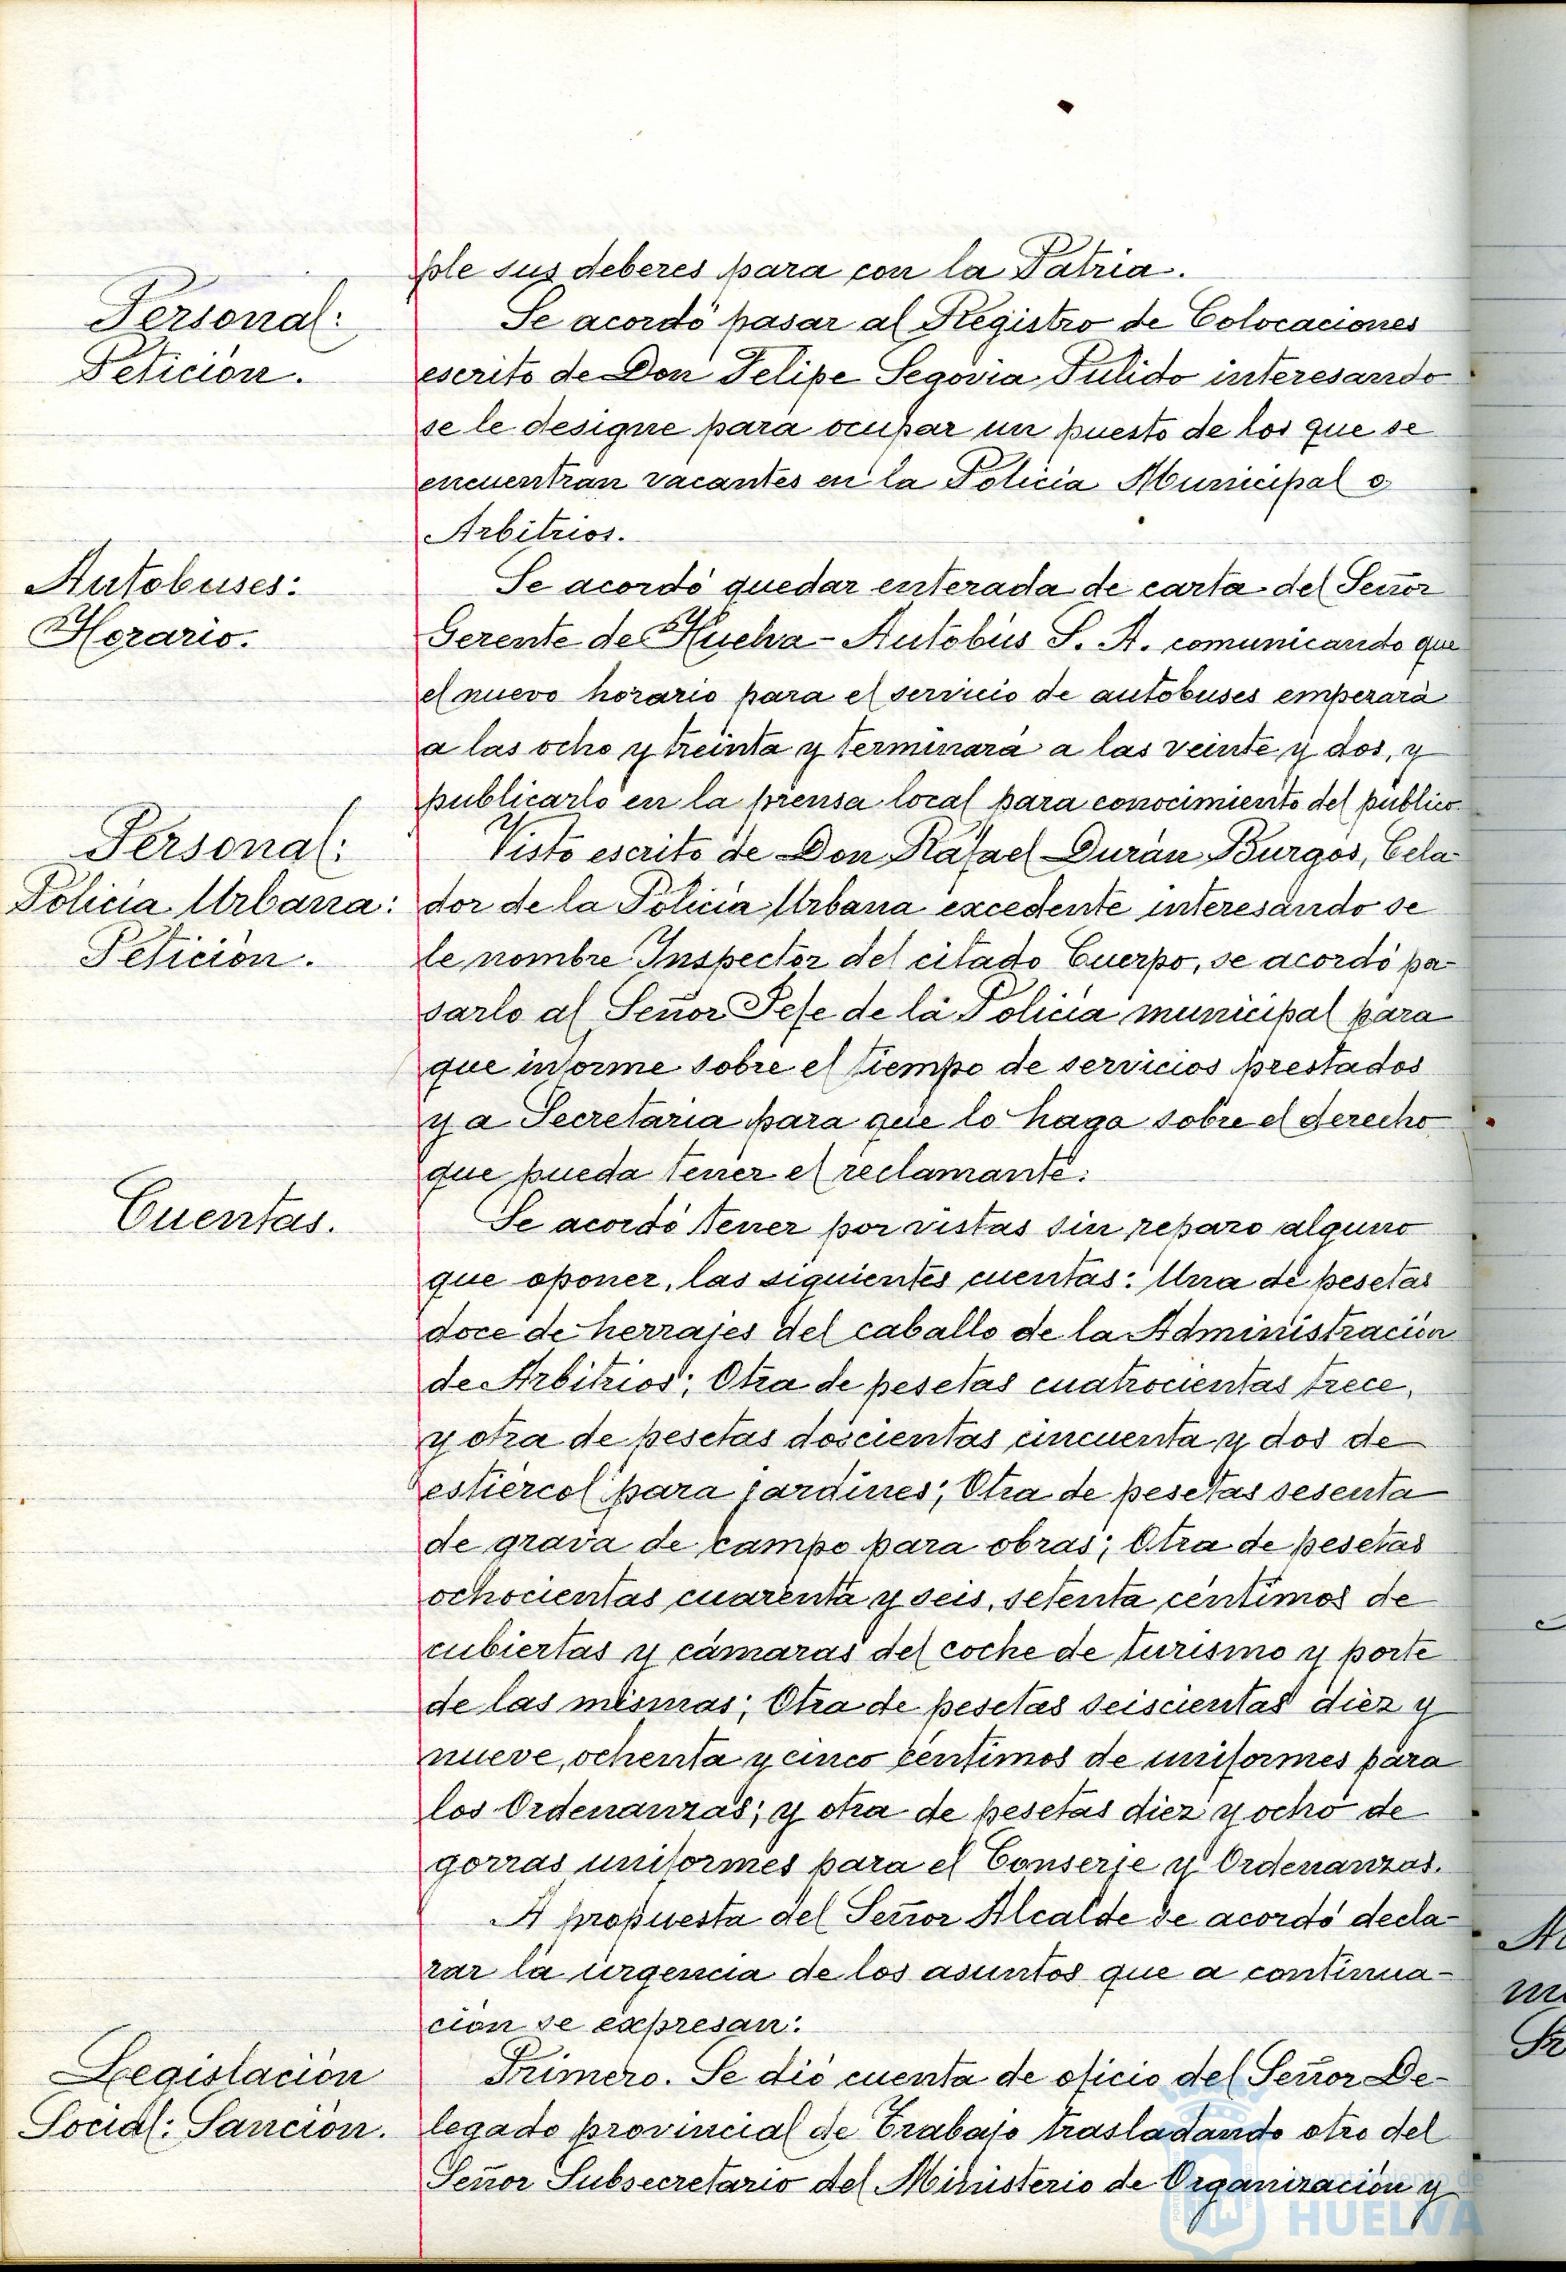 ple sus deberes para con la Patria.
Personal:
Petición.
Se acordó pasar al Registro de Colocaciones
escrito de Don Felipe Segovia Pulido interesando
se le designe para ocupar un puesto de los que se
encuentran vacantes en la Policía Municipal o
Arbitrios.
Autobuses:
Horario.
Se acordó quedar enterada de carta del Señor
Gerente de Huelva-Autobús S. A. comunicando que
el nuevo horario para el servicio de autobuses emperará
a las ocho y treinta y terminará a las veinte y dos, y
publicarlo en la prensa local para conocimiento del público.
Personal:
Policía Urbana:
Petición.
Visto escrito de Don Rafael Durán Burgos, Cela-
dor de la Policía Urbana excedente interesando se
le nombre Inspector del citado Cuerpo, se acordó pa-
sarlo al Señor Jefe de la Policía municipal para
que informe sobre el tiempo de servicios prestados
y a Secretaría para que lo haga sobre el derecho
que pueda tener el reclamante.
Cuentas.
Se acordó tener por vistas sin reparo alguno
que oponer, las siguientes cuentas: Una de pesetas
doce de herrajes del caballo de la Administración
de Arbitrios; Otra de pesetas cuatrocientas trece,
y otra de pesetas doscientas cincuenta y dos de
estiércol para jardines; Otra de pesetas sesenta
de grava de campo para obras; Otra de pesetas
ochocientas cuarenta y seis, setenta céntimos de
cubiertas y cámaras del coche de turismo y porte
de las mismas; Otra de pesetas seiscientas diez y
nueve, ochenta y cinco céntimos de uniformes para
los Ordenanzas; y otra de pesetas diez y ocho de
gorras uniformes para el Conserje y Ordenanzas.
A propuesta del Señor Alcalde se acordó decla-
rar la urgencia de los asuntos que a continua-
ción se expresan:
Legislación
Social: Sanción.
Primero. Se dió cuenta de oficio del Señor De-
legado provincial de Trabajo trasladando otro del
Señor Subsecretario del Ministerio de Organización y
Ayuntamiento de
HUELVA